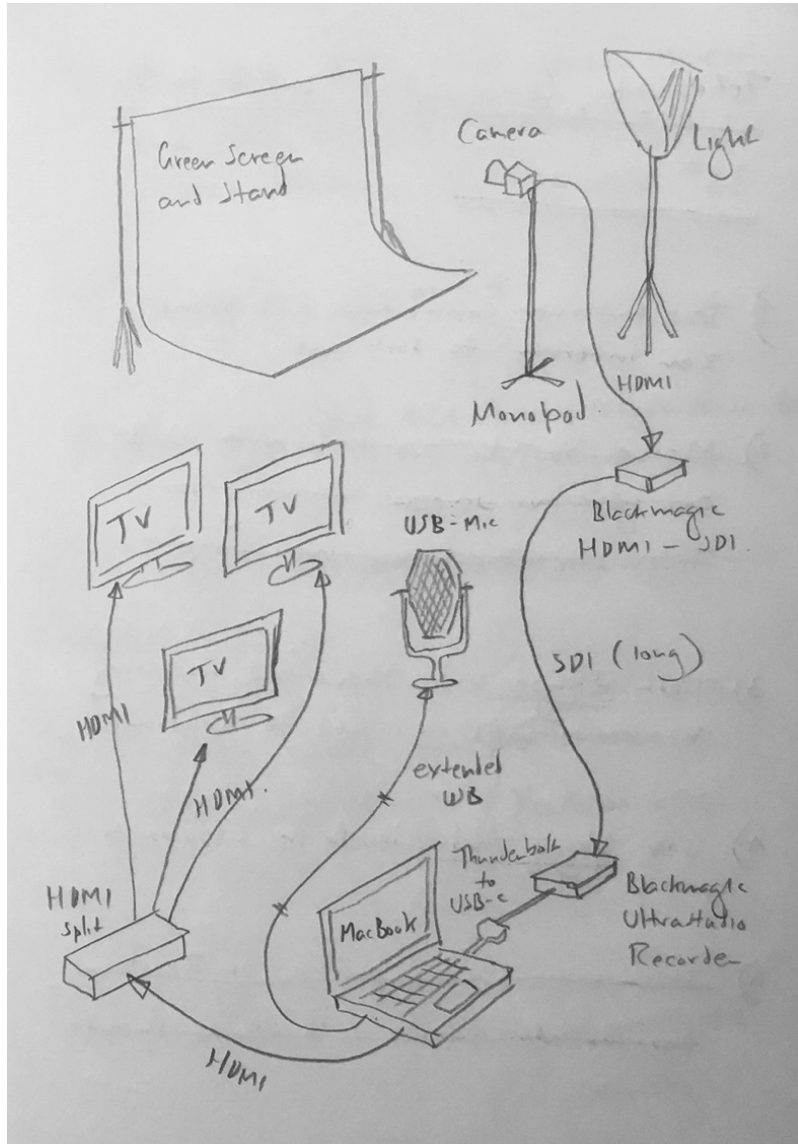 Green Screen
and Stand
Camera
Light
HDMI
Monopod.
Blackmagic
HDMI - SDI
TV
TV
TV
USB-Mic
SDI (long)
HDMI
HDMI.
extended
Thunderbolt
to
USB-C
Blackmagic
UltraStudio
Recorder
HDMI
Split
MacBook
HDMI